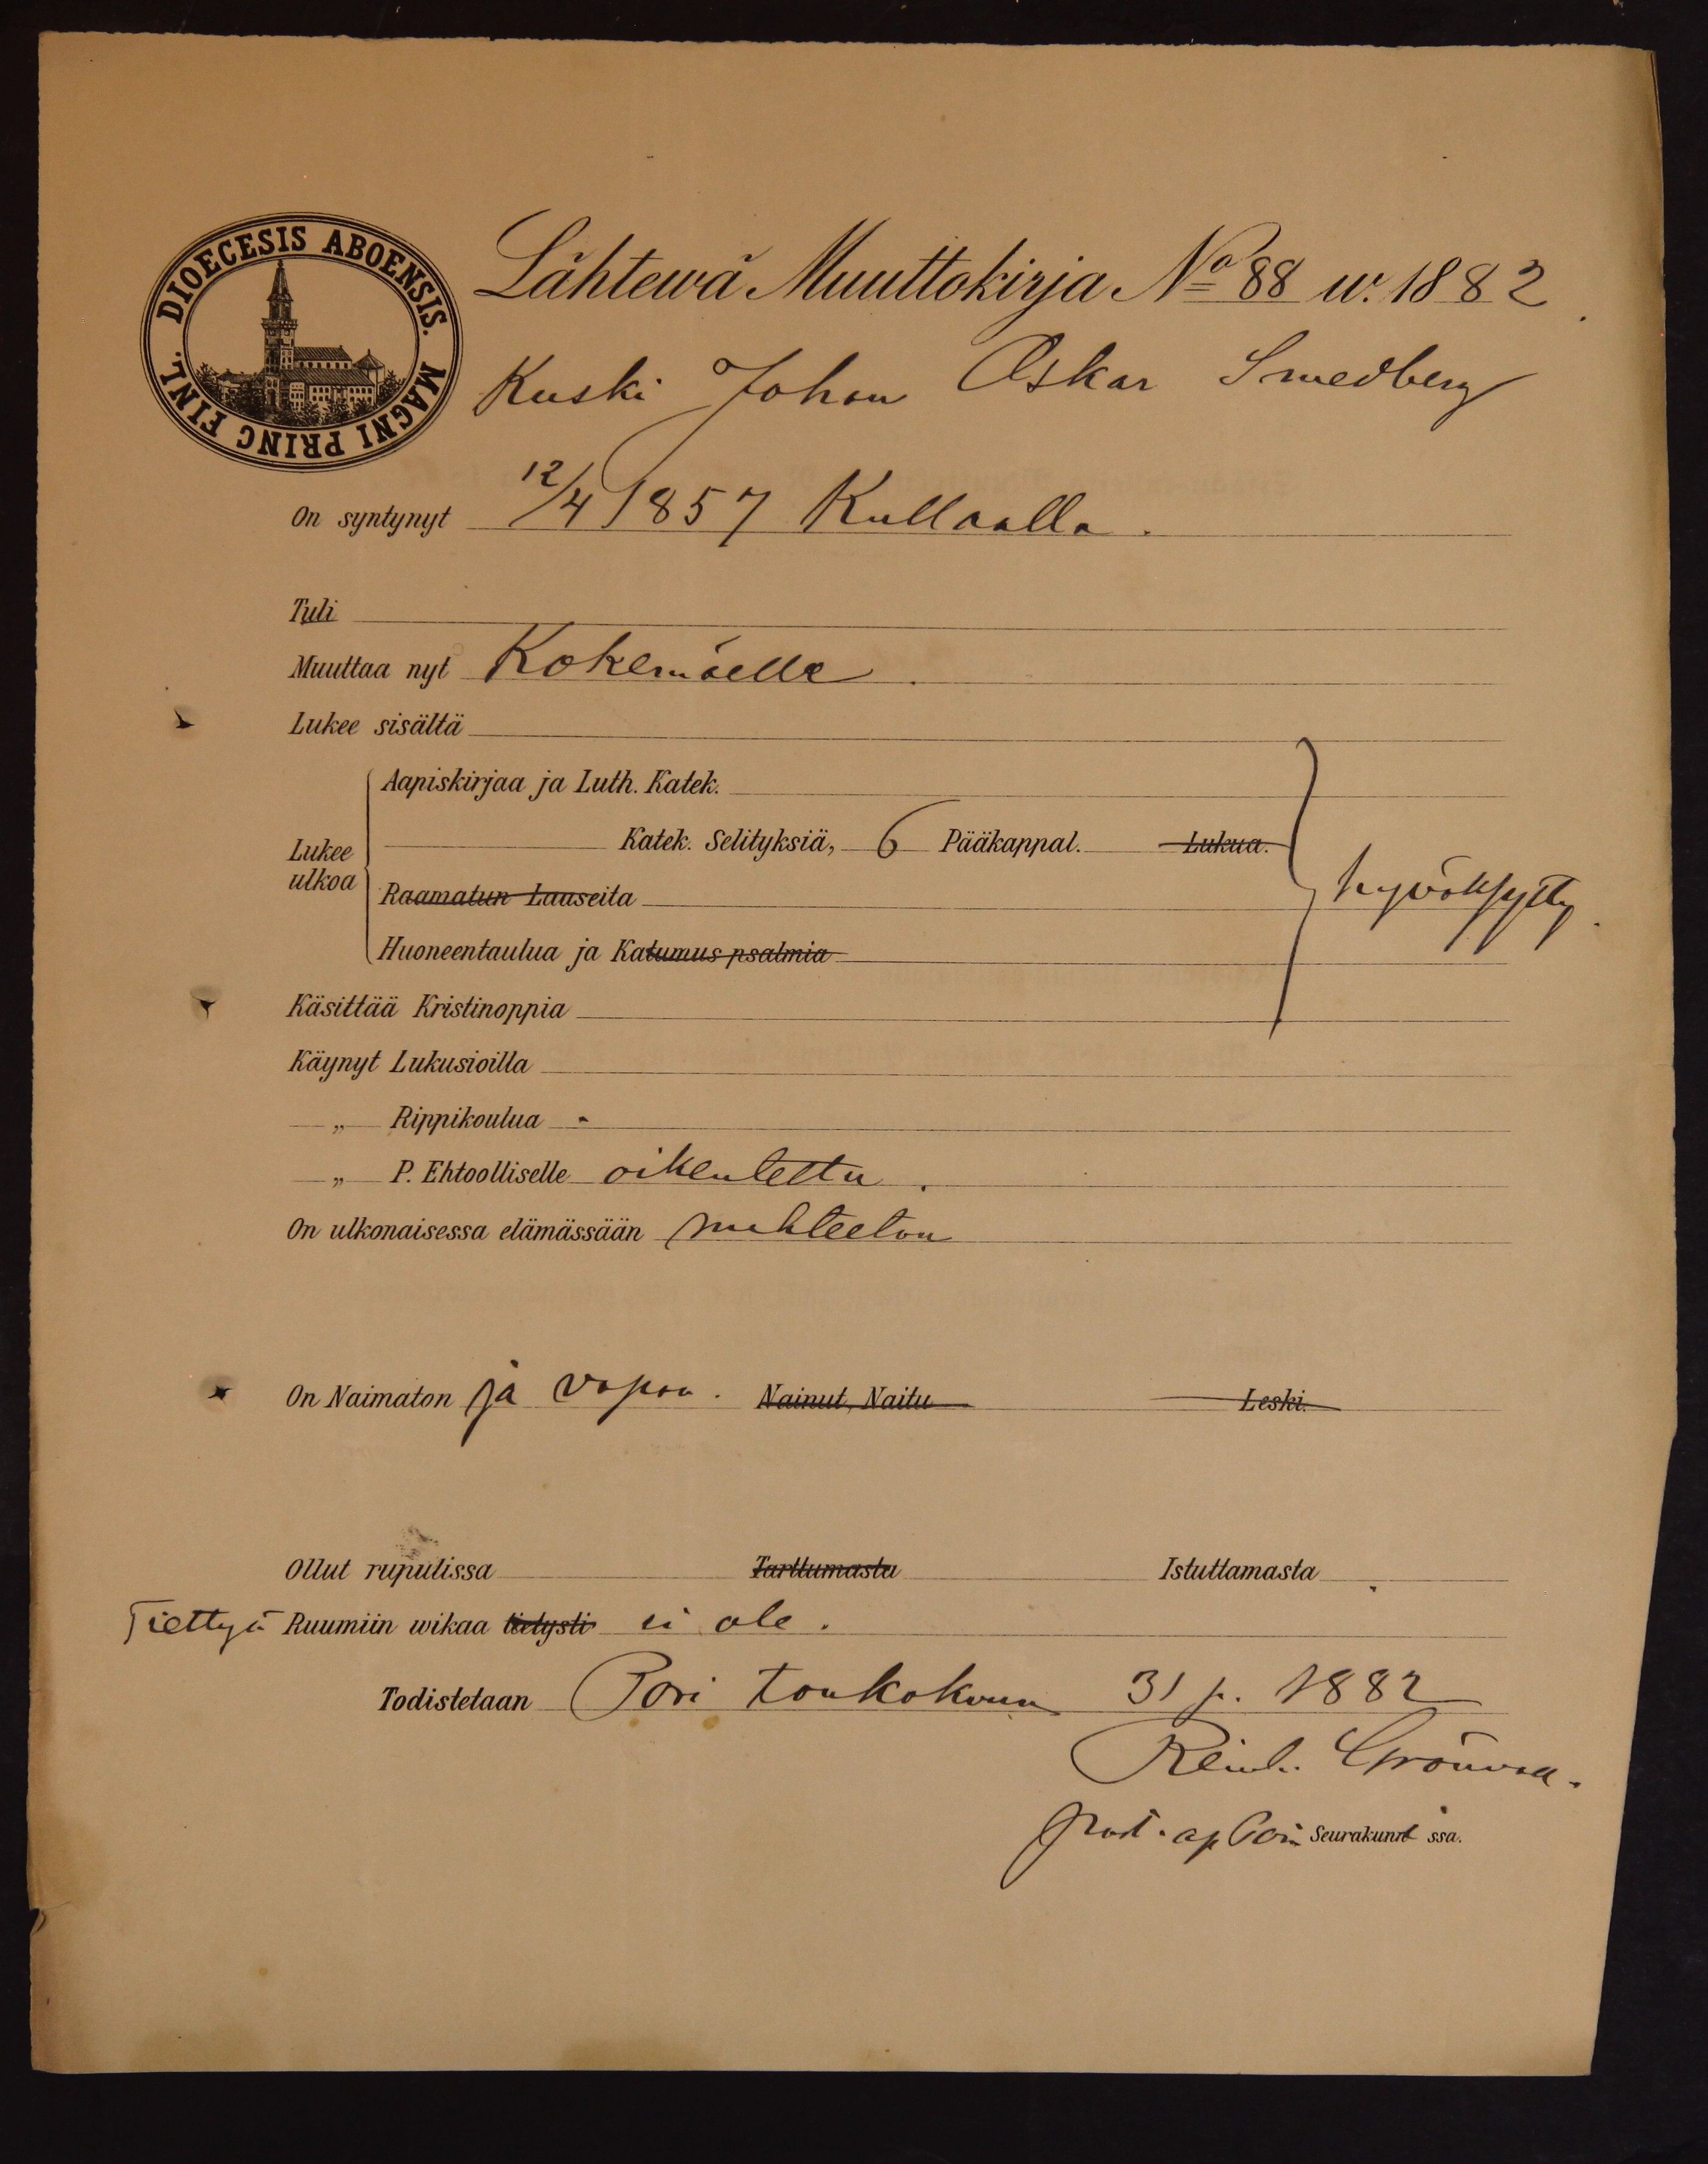 DIOECESIS ABOENSIS. MAGNI PRINC FINL.
Lähtewä Muuttokirja No 88 w. 1882.
Kuski Johan Oskar Smedberg
On syntynyt 12/4 1857 Kullaalla.
Tuli
Muuttaa nyt Kokemäelle.
Lukee sisältä
Aapiskirjaa ja Luth. Katek.
Lukee ulkoa
Katek. Selityksiä, 6 Pääkappal. Lukua.
hyväksytty.
Raamatun Lauseita
Huoneentaulua ja Katumus psalmia
Käsittää Kristinoppia
Käynyt Lukusioilla
„ Rippikoulua -
„ P. Ehtoolliselle oikeutettu.
On ulkonaisessa elämässään nuhteeton
On Naimaton ja vapaa. Nainut, Naitu Leski.
Ollut rupulissa Tarttumasta Istuttamasta.
Tiettyä Ruumiin wikaa tietysti ei ole.
Todistetaan Pori toukokuun 31 p. 1882
Reinh. Grönvall.
ap Porin Seurakunnassa.